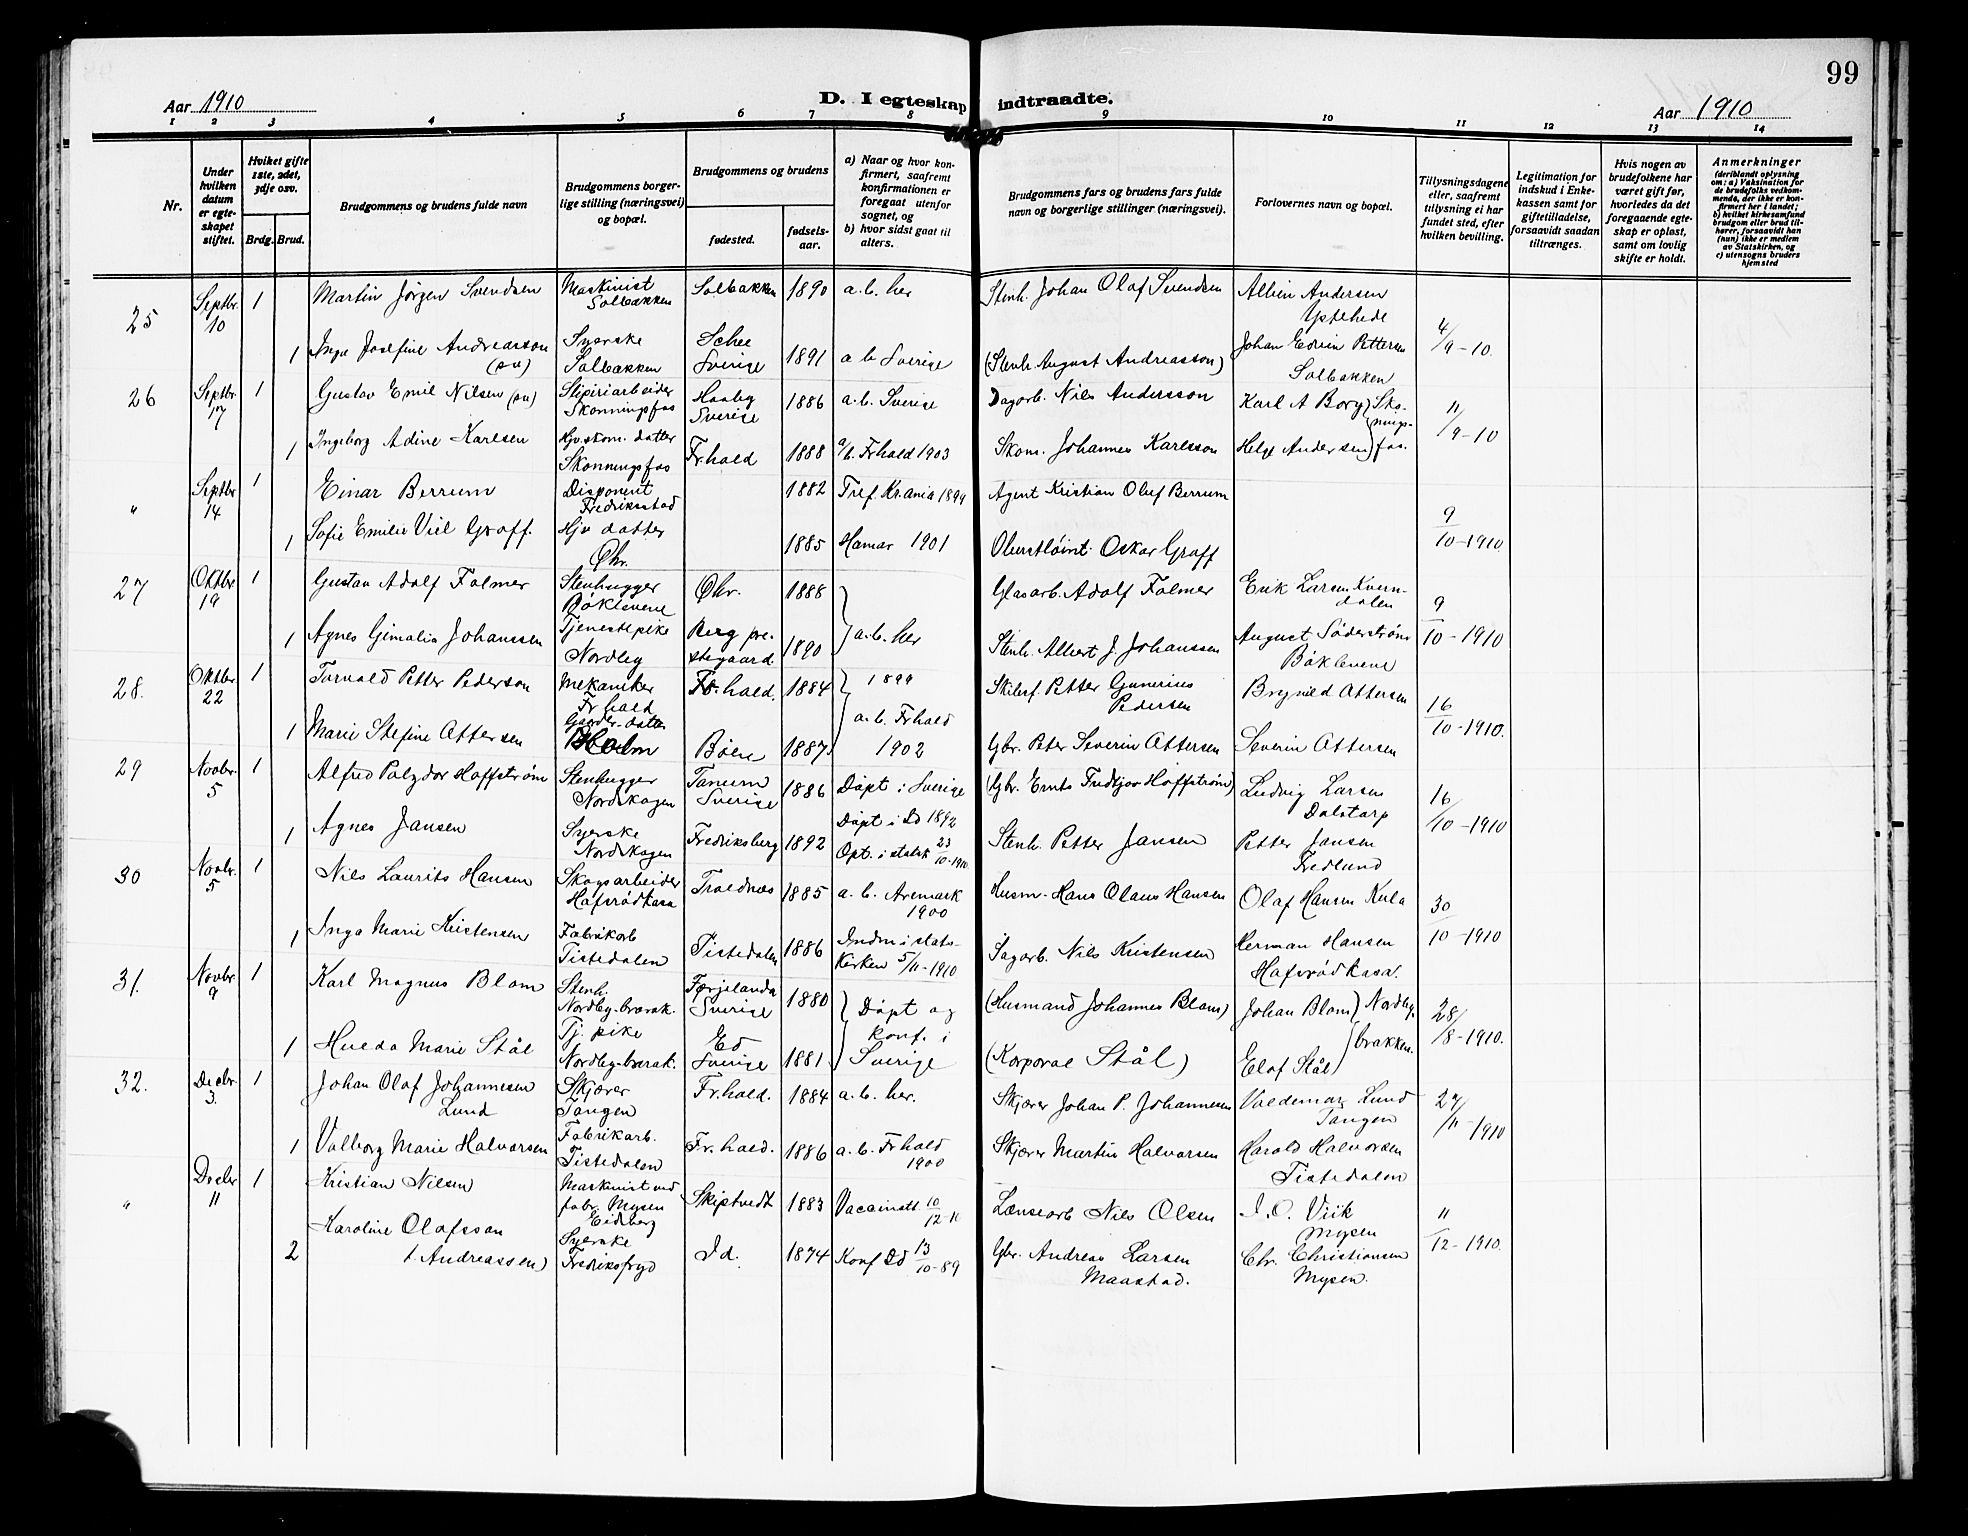 99
Aar 1910
D. I egteskap indtraadte.
Aar 1910
1 2 3 4 5 6 7 8 9 10 11 12 13 14
Nr.
Under hvilken datum er egteskapet stiftet.
Hviket gifte 1ste, 2det, 3dje osv.
Brdg. Brud.
Brudgommens og brudens fulde navn
Brudgommens borgerlige stilling (næringsvei) og bopæl.
Brudgommens og brudens
fødested.
fødselsaar.
a) Naar og hvor konfirmert, saafremt konfirmationen er foregaat utenfor sognet, og
b) hvor sidst gaat til alters.
Brudgommens fars og brudens fars fulde navn og borgerlige stillinger (næringsvei).
Forlovernes navn og bopæl.
Tillysningsdagene eller, saafremt tillysning ei har fundet sted, efter hvilken bevilling.
Legitimation for indskud i Enkekassen samt for giftetilladelse, forsaavidt saadan tiltrænges.
Hvis nogen av brudefolkene har været gift før, hvorledes da det foregaaende egteskap er opløst, samt om lovlig skifte er holdt.
Anmerkninger
(deriblandt oplysning om: a) Vaksination for de brudefolks vedkommende, der ikke er konfirmert her i landet; b) hvilket kirkesamfund brudgom eller brud tilhører, forsaavidt han (hun) ikke er medlem av Statskirken, og c) utensogns bruders hjemsted
25 Septbr. 10 1 Martin Jørgen Svendsen Maskinist Solbakken Solbakken 1890 a. b. her Stenh. Johan Olaf Svendsen Albin Andersen Ystehede 4/9-10.
1 Inga Josefine Andreasson Syerske Solbakken Sverige 1891 a. b. Sverige (Stenh. August Andreasson) Johan Edvin Pettersen Solbakken
26 Septbr. 17 1 Gustav Emil Nilsen Slipiriarbeider Skonningsfos Sverige 1886 a. b. Sverige Dagarb. Nils Andersson Karl A Borg } Skonningsfos. 11/9-10
1 Ingeborg Adine Karlsen Hjv. skom. datter Skonningsfos Fr.hald 1888 a/b. Frhald 1903 Skom. Johannes Karlsson Helge Andersen
" Septbr 14 1 Einar Berrum Disponent Fredriksstad 1882 Tref. Kr.ania 1899 Agent Kristian Oluf Berrum 9/10-1910
1 Sofie Emilie Viel Graff. Hjv datter Øhr. 1885 Hamar 1901 Oberstløint. Oskar Graff
27 Oktbr 19 1 Gustav Adolf Folmer Stenhugger Bøklevene Øhr. 1888 } a. b. her Glasarb. Adolf Folmer Erik Larsen Kverndalen 9/10-1910
1 Agnes Gimalia Johanssen Tjenestepike Nordleg Berg prestegaard 1890 Stenh. Albert J. Johanssen August Söderstrøm Bøklevene
28. Oktbr 22 1 Torvald Petter Pederson Mekaniker Fr hald Fr.hald. 1884 } 1899 a. b. Frhald Skilsf. Petter Gunerius Pedersen Brynild Attersen 16/10-1910.
1 Marie Stefine Attersen Gaarder. datter Holm Böen 1887 1902 Gbr. Peter Severin Attersen Severin Attersen
29 Novbr. 5 1 Alfred Hoffstrøm Stenhugger Nordskogen Tanum Sverige 1886 Døpt i Sverige (Gbr. Ernts Fredtjov Hoffstrøm) Ludvig Larsen Dalstorp 16/10-1910
1 Agnes Jansen Syerske Nordskogen Fredriksberg 1892 Døpt i Id 1892 Opt. i statsk 23/10-1910. Stenh. Petter Jansen Petter Jansen Fredlund
30 Novbr. 5 1 Nils Laurits Hansen Skogsarbeider Hafsrødkasa Troldnæs 1885 a. b. Aremark 1900 Husm. Hans Olaus Hansen Olaf Hansen Kula 30/10-1910
1 Inga Marie Kristensen Fabrikarb Tistedalen Tistedalen 1886 Indm i statskirken 5/11-1910 Sagarb. Nils Kristensen Herman Hansen Hafsrødkasa.
31. Novbr. 9 1 Karl Magnus Blom Stenh. Nordby-barak. Færjelanda Sverige 1880 } Døpt og konf. i Sverige (Husmand Johannes Blom) Johan Blom } Nordby-brakken. 28/8-1910.
1 Hulda Marie Stål Tj. pike Nordby-barak. Ed Sverige 1881 (Korporal Stål) Elof Stål
32. Decbr. 3. 1 Johan Olaf Johannesen Lund Skjærer Tangen Fr.hald. 1884 a. b. her. Skjærer Johan P. Johannesen Valdemar Lund Tangen 27/11-1910
1 Valborg Marie Halvorsen Fabrikarb. Tistedalen Fr.hald. 1886 a. b. Fr hald 1900 Skjærer Martin Halvorsen Harald Halvorsen Tistedalen
" Decbr 11 1 Kristian Nilsen Maskinist ved fabr. Mysen Eidsberg Skiptvedt 1883 Vaccinatt. 10/12-10 Lænsearb Nils Olsen J. O. Viik Mysen 11/12-1910.
2 Karoline Olafsson f. Andreassen) Syerske Fredriksfryd Id. 1874 Konf Id 13/10-89 Gbr. Andreas Larsen Maastad. Chr. Christiansen Mysen.